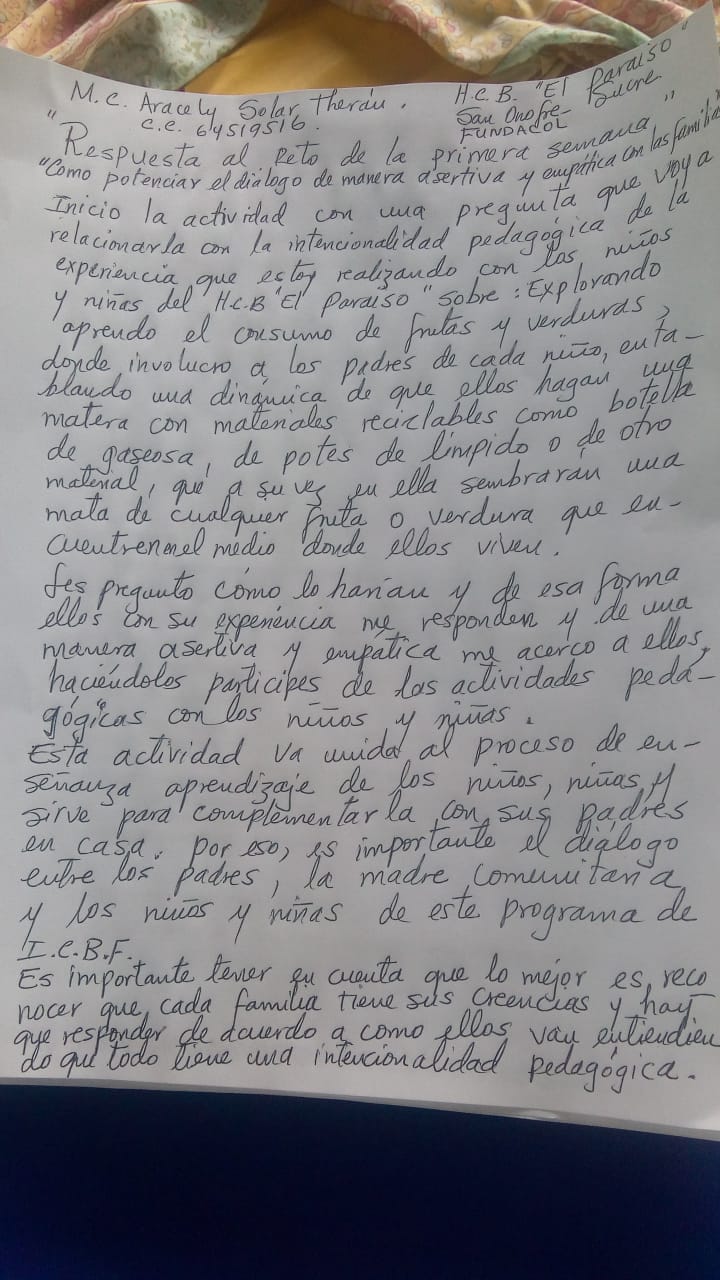 M.C. Aracely Solar Therán. H.C.B. "El Paraiso"
C.C. 64519516. San Onofre Sucre
FUNDACOL
"Respuesta al Reto de la primera semana"
"Como potenciar el diálogo de manera asertiva y empática con las familias
Inicio la actividad con una pregunta que voy a
relacionarla con la intencionalidad pedagógica de la
experiencia que estoy realizando con los niños
y niñas del H.C.B "El Paraiso" sobre: Explorando
aprendo el consumo de frutas y verduras,
donde involucro a los padres de cada niño, enta-
blando una dinámica de que ellos hagan una
matera con materiales reciclables como botella
de gaseosa, de potes de límpido o de otro
material, que a su vez en ella sembrarán una
mata de cualquier fruta o verdura que en-
cuentren en el medio donde ellos viven.
Les pregunto cómo lo harían y de esa forma
ellos con su experiencia me responden y de una
manera asertiva y empática me acerco a ellos,
haciéndolos participes de las actividades peda-
gógicas con los niños y niñas.
Esta actividad va unida al proceso de en-
señanza aprendizaje de los niños, niñas y
sirve para complementarla con sus padres
en casa. Por eso, es importante el diálogo
entre los padres, la madre comunitaria
y los niños y niñas de este programa de
I.C.B.F.
Es importante tener en cuenta que lo mejor es reco
nocer que cada familia tiene sus creencias y hay
que responder de acuerdo a como ellos van entiendien
do que todo tiene una intencionalidad pedagógica.